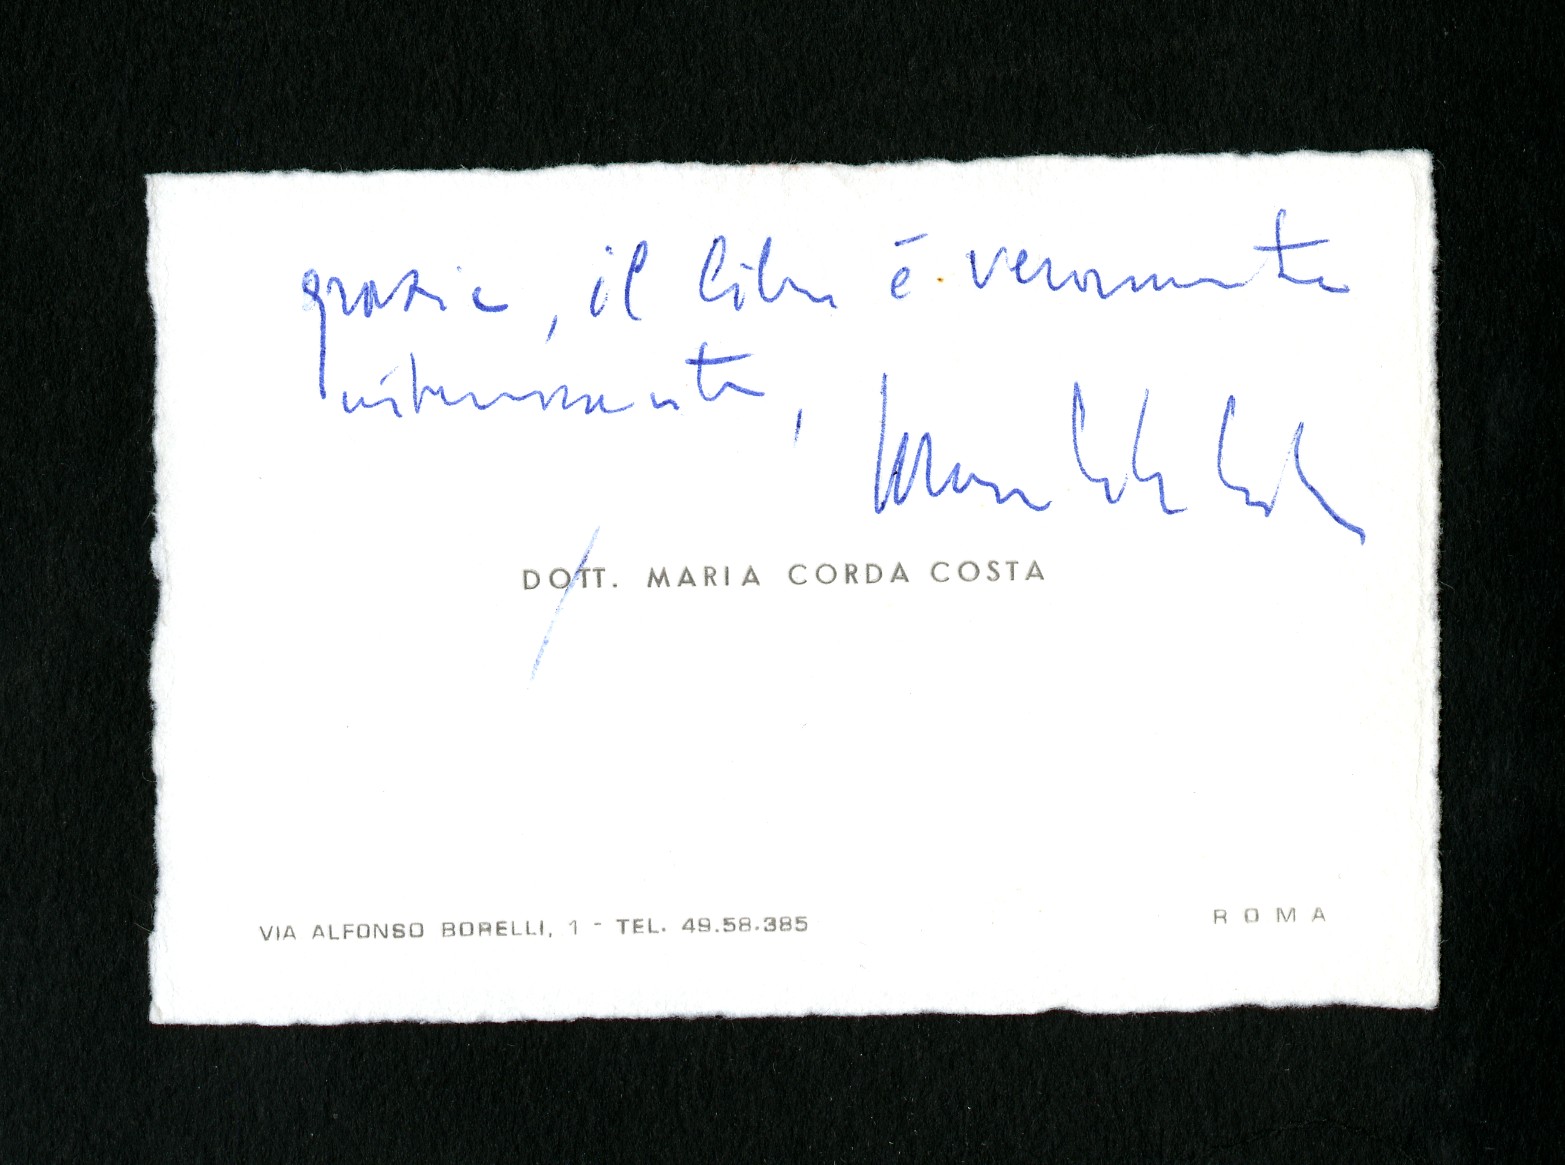 grazie, il libro è veramente
interessante,
Maria Corda Costa
DOTT. MARIA CORDA COSTA
VIA ALFONSO BORELLI, 1 - TEL. 49.58.385
ROMA